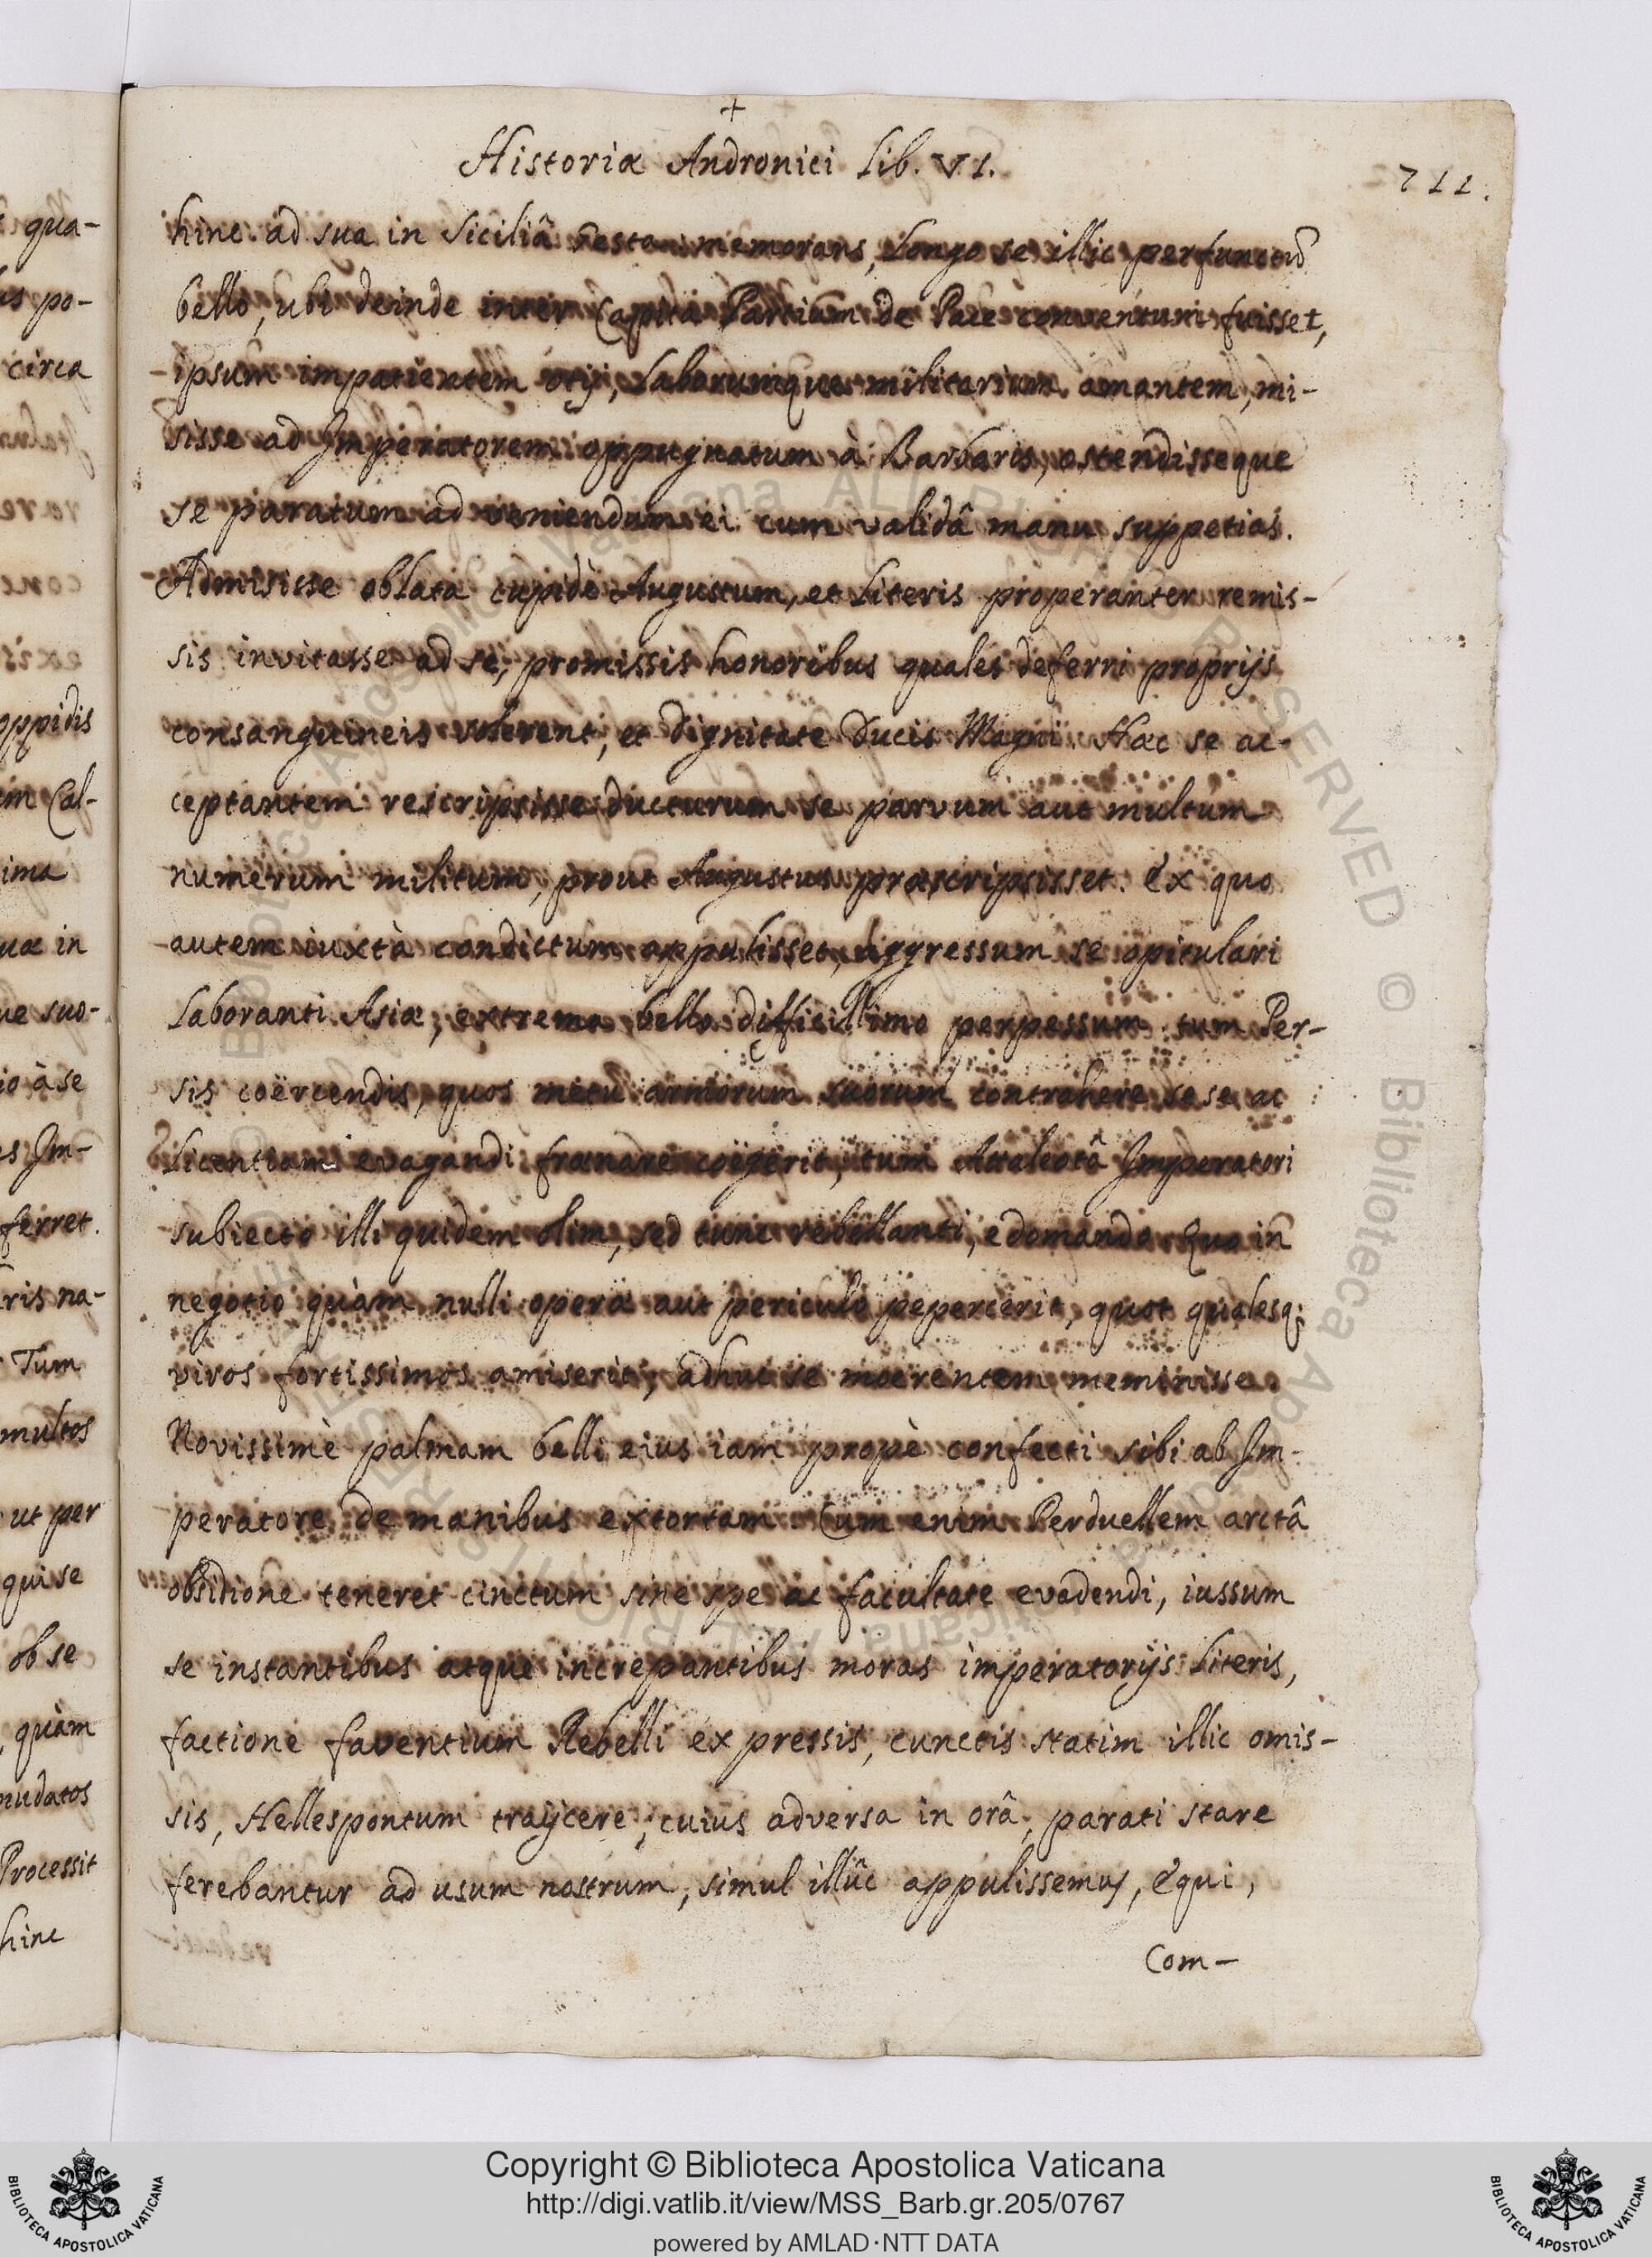 +
Historiæ Andronici Lib. VI.
711.
hinc ad sua in Siciliâ gesta memorans, Longo se illic perfunctũ
bello, ubi deinde inter Capita Partium de Pace conventum fuisset,
ipsum impatientem otij, Laborumque militarium amantem, mi-
sisse ad Imperatorem oppugnatum à Barbaris, ostendisseque
se paratum ad veniendum ei cum validâ manu suppetias.
Admisisse oblata cupidè Augustum, et Literis properanter remis-
sis invitasse ad se, promissis honoribus quales deferri proprijs
consanguineis solerent, et dignitate Ducis Magni. Hæc se ac-
ceptantem rescripsisse ducturum se parvum aut multum
numerum militum, prout Augustus præscripsisset. Ex quo
autem iuxtà condictum appulisset, aggressum se opitulari
Laboranti Asiæ, extrema bello difficillimo perpessum tum Per-
sis coërcendis, quos metu armorum suorum contrahere sese ac
Licentiam evagandi frænare coëgerit, tum Attaleotâ Imperatori
subiecto illi quidem olim, sed tunc rebellanti, edomando. Quo in
negotio quàm nulli operæ aut periculo pepercerit, quot qualesq;
viros fortissimos amiserit, adhuc se moerentem meminisse.
Novissimè palmam belli eius iam propè confecti sibi ab Im-
peratore de manibus extortam. Cum enim Perduellem arctâ
obsidione teneret cinctum sine spe ac facultate evadendi, iussum
se instantibus atque increpantibus moras imperatorijs Literis,
factione faventium Rebelli expressis, cunctis statim illic omis-
sis, Hellespontum traijcere; cuius adversa in orâ, parati stare
ferebantur ad usum nostrum, simul illûc appulissemus, Equi,
Com-
qua-
po-
circa
oppidis
Cal-
in
suo-
à se
Im-
ferret.
na-
Tum
multos
ut per
qui se
ob se
quàm
Processit
hinc
Copyright © Biblioteca Apostolica Vaticana
http://digi.vatlib.it/view/MSS_Barb.gr.205/0767
powered by AMLAD·NTT DATA
BIBLIOTECA APOSTOLICA VATICANA
BIBLIOTECA APOSTOLICA VATICANA